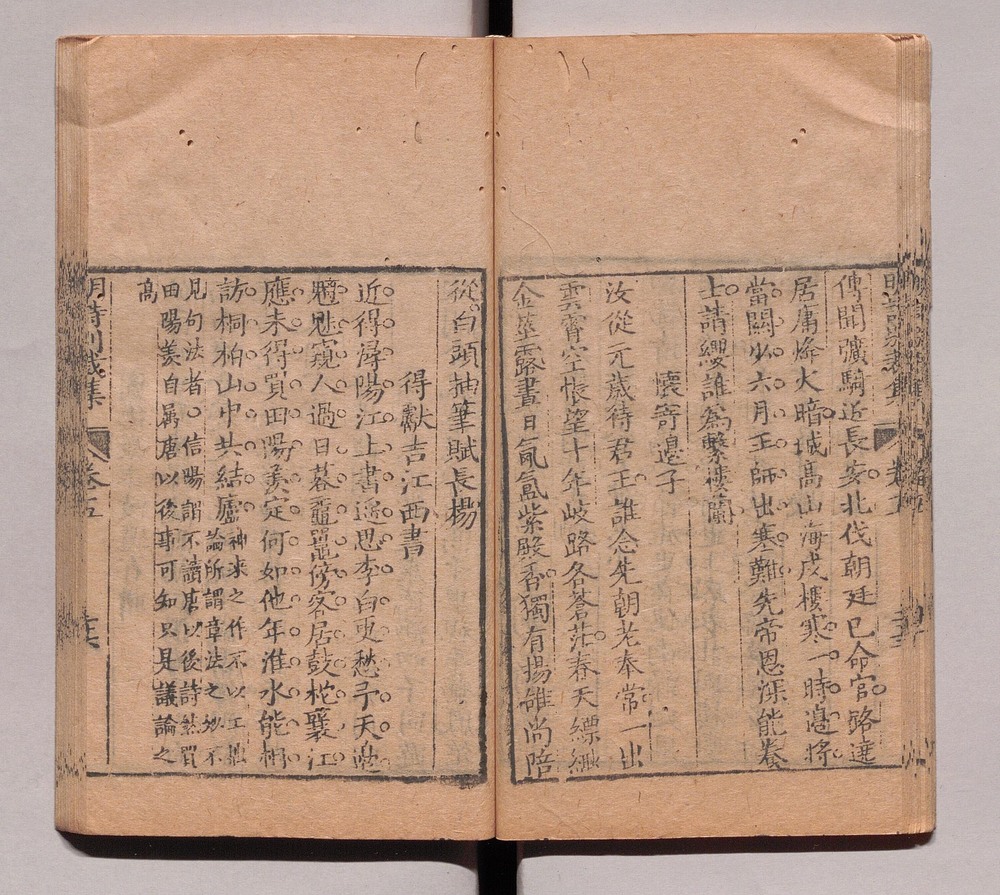 傳聞獷騎近長安北伐朝廷已命官路遶
居庸烽火暗城高山海戍樓寒一時邊將
當關少六月王師出塞難先帝恩深能養
士請纓誰爲繫樓蘭
懷寄邊子
汝從元歲待君王誰念先朝老奉常一出
雲霄空悵望十年岐路各蒼茫春天縹緲
金莖露晝日氤氳紫殿香獨有揚雄尚陪
從白頭抽筆賦長楊
得獻吉江西書
近得潯陽江上書遥思李白更愁予天邊
魑魅窺人過日暮黿鼉傍客居鼓柁襄江
應未得買田陽羨定何如他年淮水能相
訪桐柏山中共結廬神來之作不以工拙
論所謂章法之妙不
見句法者○信陽謂不讀唐以後詩然買
田陽羨自属唐以後事可知只是議論之
高
明詩別裁集 卷五